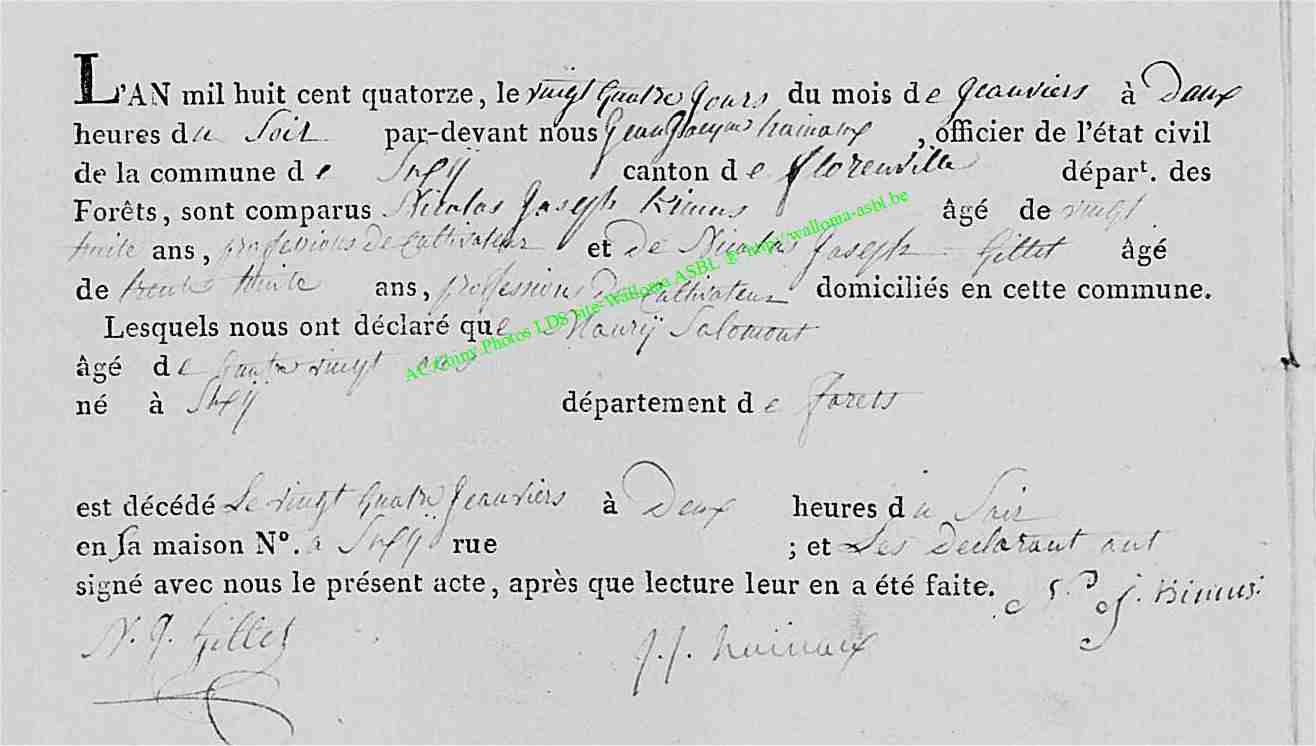 L'AN mil huit cent quatorze, le vingt quatre jours du mois de jeanviers à Deux
heures du Soir par-devant nous Jean Jacques hainaux, officier de l'état civil
de la commune de Suxÿ canton de florenville départ. des
Forêts, sont comparus Nicolas Joseph Kimus âgé de vingt
huite ans, professions De Cultivateur et De Nicolas Joseph Gillet âgé
de trente huite ans, professions De Cultivateur domiciliés en cette commune.
Lesquels nous ont déclaré que Maurÿ Salomont
âgé de quatre vingt ans
né à Suxÿ département de forets
est décédé Le vingt quatre jeanviers à Deux heures du Soir
en sa maison Nº. a Suxÿ rue ; et Les Declarant ont
signé avec nous le présent acte, après que lecture leur en a été faite. J. Kimus
N. J. Gillet J. J. hainaux
AC Chiny Photos LDS Site-Walloma ASBL http://walloma-asbl.be